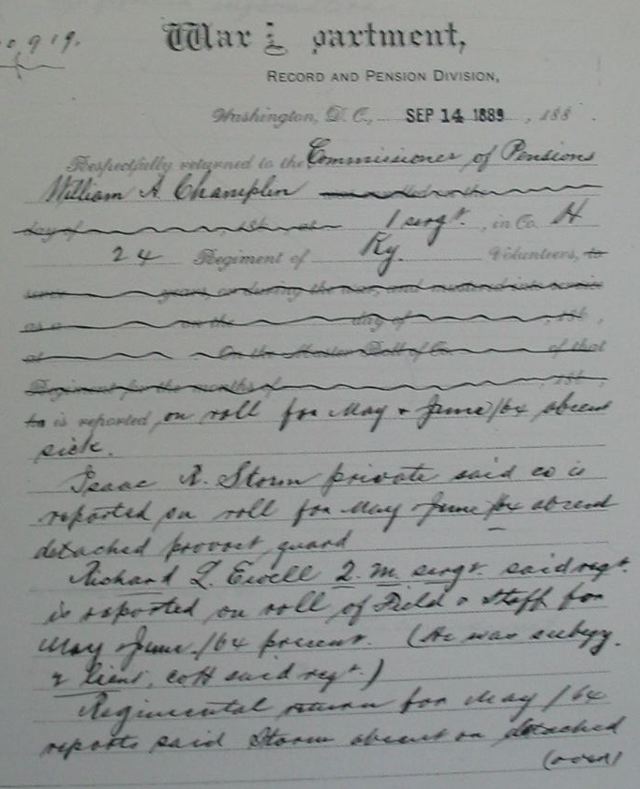 0,919.
War Department,
RECORD AND PENSION DIVISION,
Washington, D. C., SEP 14 1889, 188 .
Respectfully returned to the Commissioner of Pensions
William A. Champlin
day of 1 sergt., in Co. H
24 Regiment of Ky. Volunteers, to
serve years or during the war, and
as a on the day of , 186 ,
at On the Muster Roll of Co. of that
Regiment for the months of , 186 ,
he is reported on roll for May & June /64 absent
sick.
Isaac R. Storm private said co is
reported on roll for May June /64 absent
detached provost guard
Richard L. Ewell Q. M. sergt. said regt.
is reported on roll of Field & Staff for
May & June /64 present. (He was subsqy.
2 lieut, co H said regt.)
Regimental return for May /64
reports said Storm absent on detached
(over)